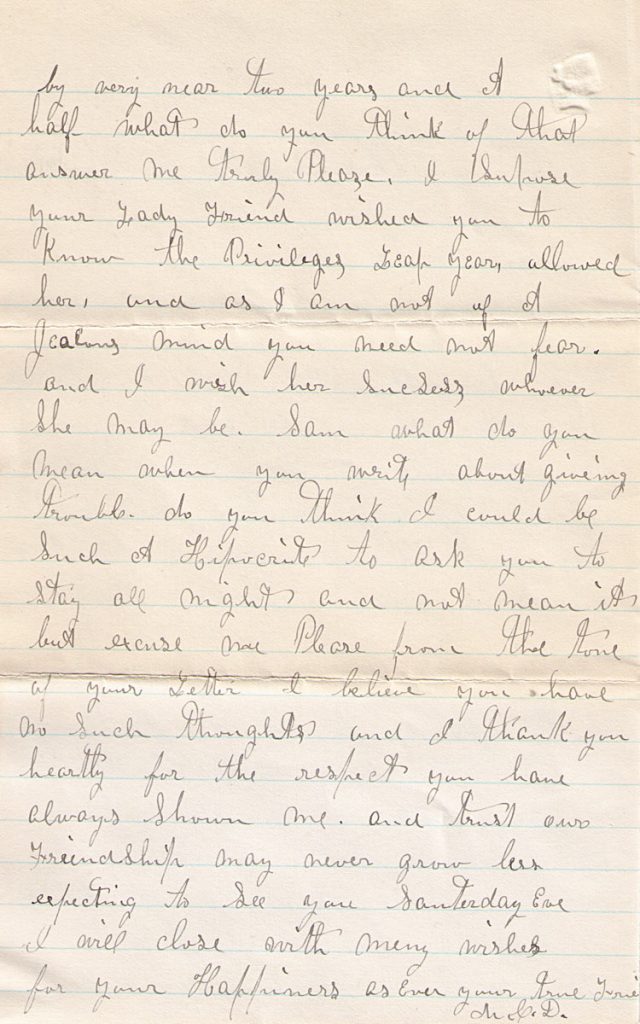 by very near two years and A
half what do you think of that
answer me truly Please. I Supose
your Lady Friend wished you to
Know the Privileges Leap Years allowed
her, and as I am not of A
Jealous mind you need not fear.
and I wish her Sucsess whoever
She may be. Sam what do you
mean when you write about giveing
trouble. do you think I could be
Such A Hipocrite to ask you to
stay all night and not mean it
but excuse me Please from the tone
of your Letter I believe you have
no such thoughts and I thank you
heartly for the respect you have
always shown me. and trust our
Friendship may never grow less
expecting to See you Santerday Eve
I will close with meny wishes
for your Happiness as Ever your true Frie
M. C. D.